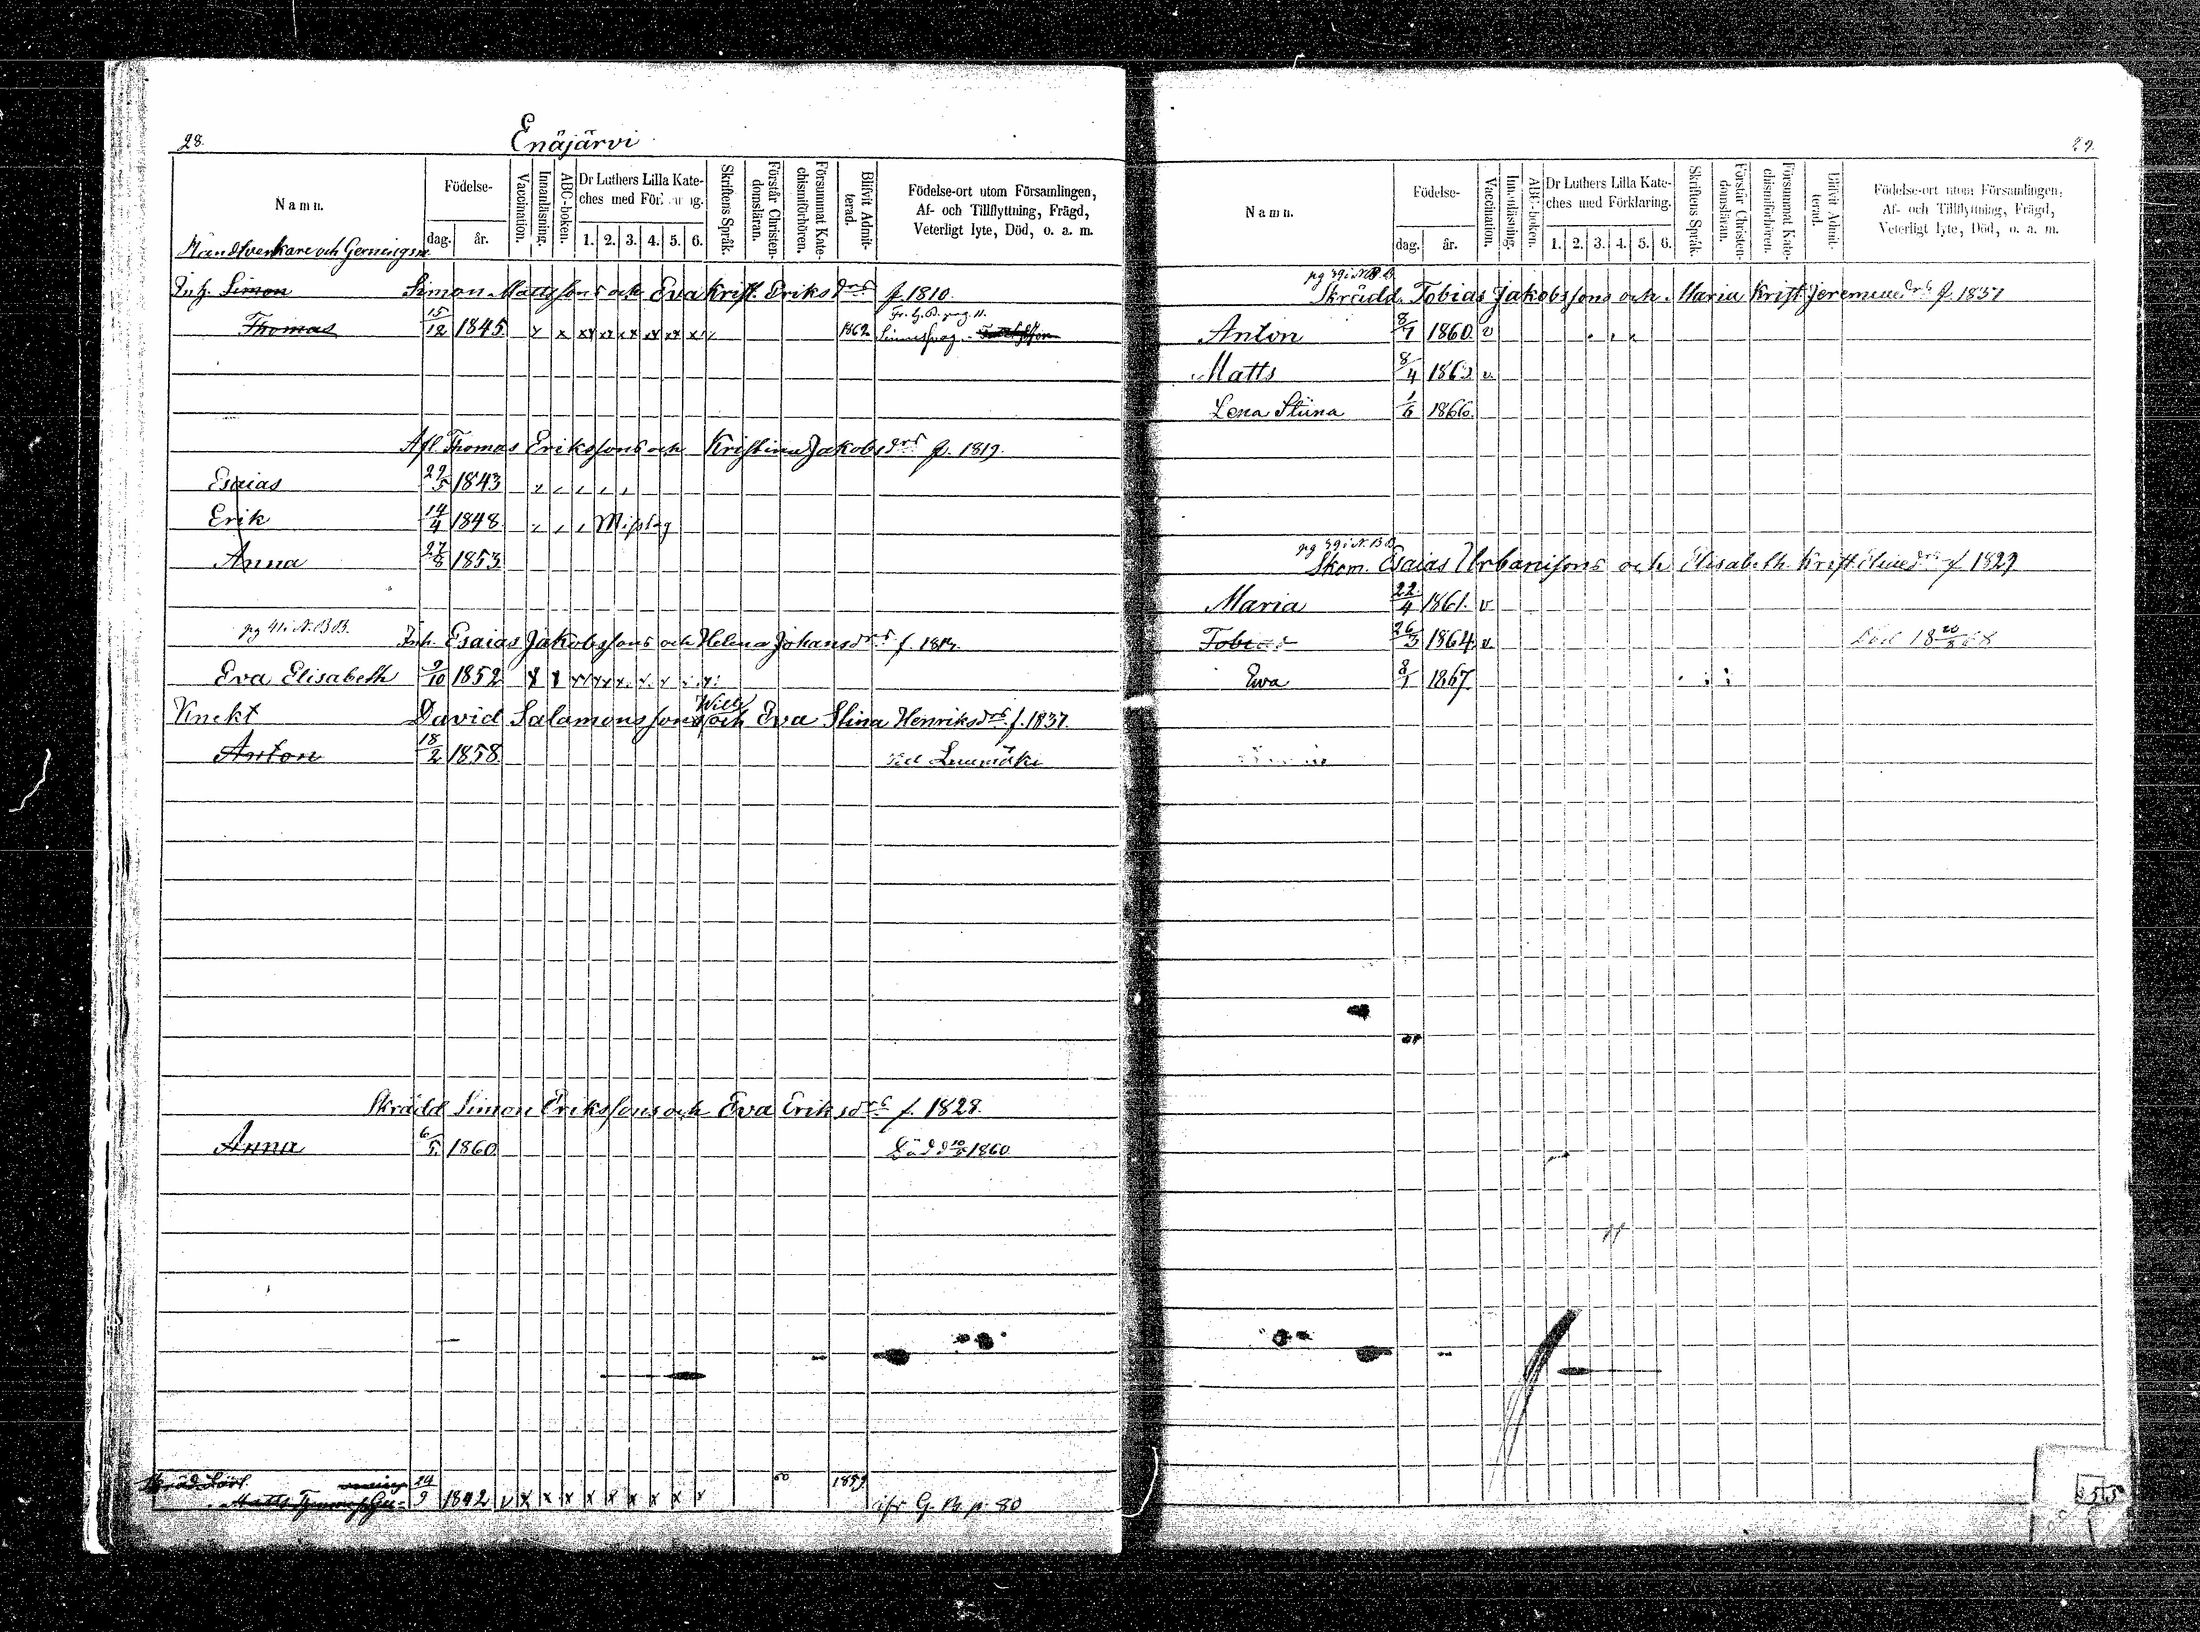 28.
Enäjärvi
Namn.
Födelse-
dag.
år.
Vaccination.
Innanläsning.
ABC-boken.
Dr Luthers Lilla Kate-
ches med För
1. 2. 3. 4. 5. 6.
Skriftens Språk.
Förstår Christen-
domsläran.
Försummat Kate-
chismiförhören.
Blifvit Admit-
terad.
Födelse-ort utom Församlingen,
Af- och Tillflyttning, Frägd,
Veterligt lyte, Död, o. a. m.
Handtverkare och
Inh. Simon Simon Mattssons och Eva Krist. Eriks drs f. 1810.
Thomas 15/12 1845. x x xx xx xx xx xx x 1862
Afl. Thomas Erikssons och Kristina Jakobs drs f. 1819.
Esaias 1843
Erik 14/4 1848.
Anna 27/8 1853
pg 41 i N.B.B. Inh. Esaias Jakobssons och Helena Johans drs f.
Eva Elisabeth 9/10 1852
Knekt David Salomonssons och Eva Stina Henriks drs f. 1837.
Anton 18/2 1858
Skrädd Simon Erikssons och Eva Eriks drs f. 1828.
Anna 6/5 1860 Död 1860
24/9 1842 v x x x x x x x x x 1859 G. B. p. 80
29.
Namn.
Födelse-
dag.
år.
Vaccination.
Innanläsning.
ABC-boken.
Dr Luthers Lilla Kate-
ches med Förklaring.
1. 2. 3. 4. 5. 6.
Skriftens Språk.
Förstår Christen-
domsläran.
Försummat Kate-
chismiförhören.
Blifvit Admit-
terad.
Födelse-ort utom Församlingen,
Af- och Tillflyttning, Frägd,
Veterligt lyte, Död, o. a. m.
pg 39 i N.B.B.
Skrädd. Tobias Jakobssons och Maria Krist.
Anton 1860. v
Matts 8/4 v
Lena Stina 1/6 1866.
pg 39 i N.B.B.
Skom. Esaias Urbanssons och Elisabeth Krist. f. 1829
Maria 22/4 1861. v
Tobias 26/3 1864. v Död
Eva 8/1 1867.